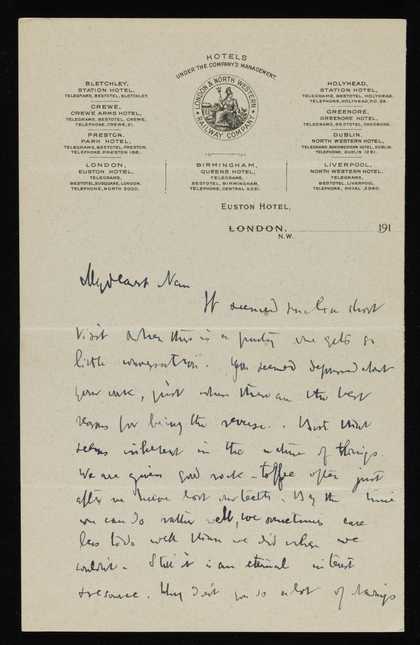 HOTELS
UNDER THE COMPANY'S MANAGEMENT.
LONDON & NORTH WESTERN
RAILWAY COMPANY
BLETCHLEY,
STATION HOTEL,
TELEGRAMS, BESTOTEL, BLETCHLEY.
CREWE,
CREWE ARMS HOTEL,
TELEGRAMS, BESTOTEL, CREWE.
TELEPHONE, CREWE, 21.
PRESTON,
PARK HOTEL,
TELEGRAMS, BESTOTEL, PRESTON.
TELEPHONE, PRESTON
LONDON,
EUSTON HOTEL,
TELEGRAMS,
BESTOTEL, EUSQUARE, LONDON.
TELEPHONE, NORTH 3000.
BIRMINGHAM,
QUEENS HOTEL,
TELEGRAMS,
BESTOTEL, BIRMINGHAM.
TELEPHONE, CENTRAL
HOLYHEAD,
STATION HOTEL,
TELEGRAMS, BESTOTEL, HOLYHEAD.
TELEPHONE, HOLYHEAD, NO.
GREENORE,
GREENORE HOTEL,
TELEGRAMS, BESTOTEL, GREENORE.
DUBLIN,
NORTH WESTERN HOTEL,
TELEGRAMS, HOTEL, DUBLIN.
TELEPHONE, DUBLIN
LIVERPOOL,
NORTH WESTERN HOTEL,
TELEGRAMS,
BESTOTEL, LIVERPOOL.
TELEPHONE, ROYAL
EUSTON HOTEL,
LONDON, 191
N.W.
My dearest Nan
It seemed such a short
visit when there is a party one gets so
little conversation. You seemed depressed about
your work, just when there are the best
reasons for being the reverse. that
seems inherent in the nature of things.
We are given good rock-toffee often just
after we have lost our teeth. By the time
we can do rather well, we sometimes care
less to do well than we did when we
couldn't. Still it is an eternal interest
& resource. Why don't you do a lot of things